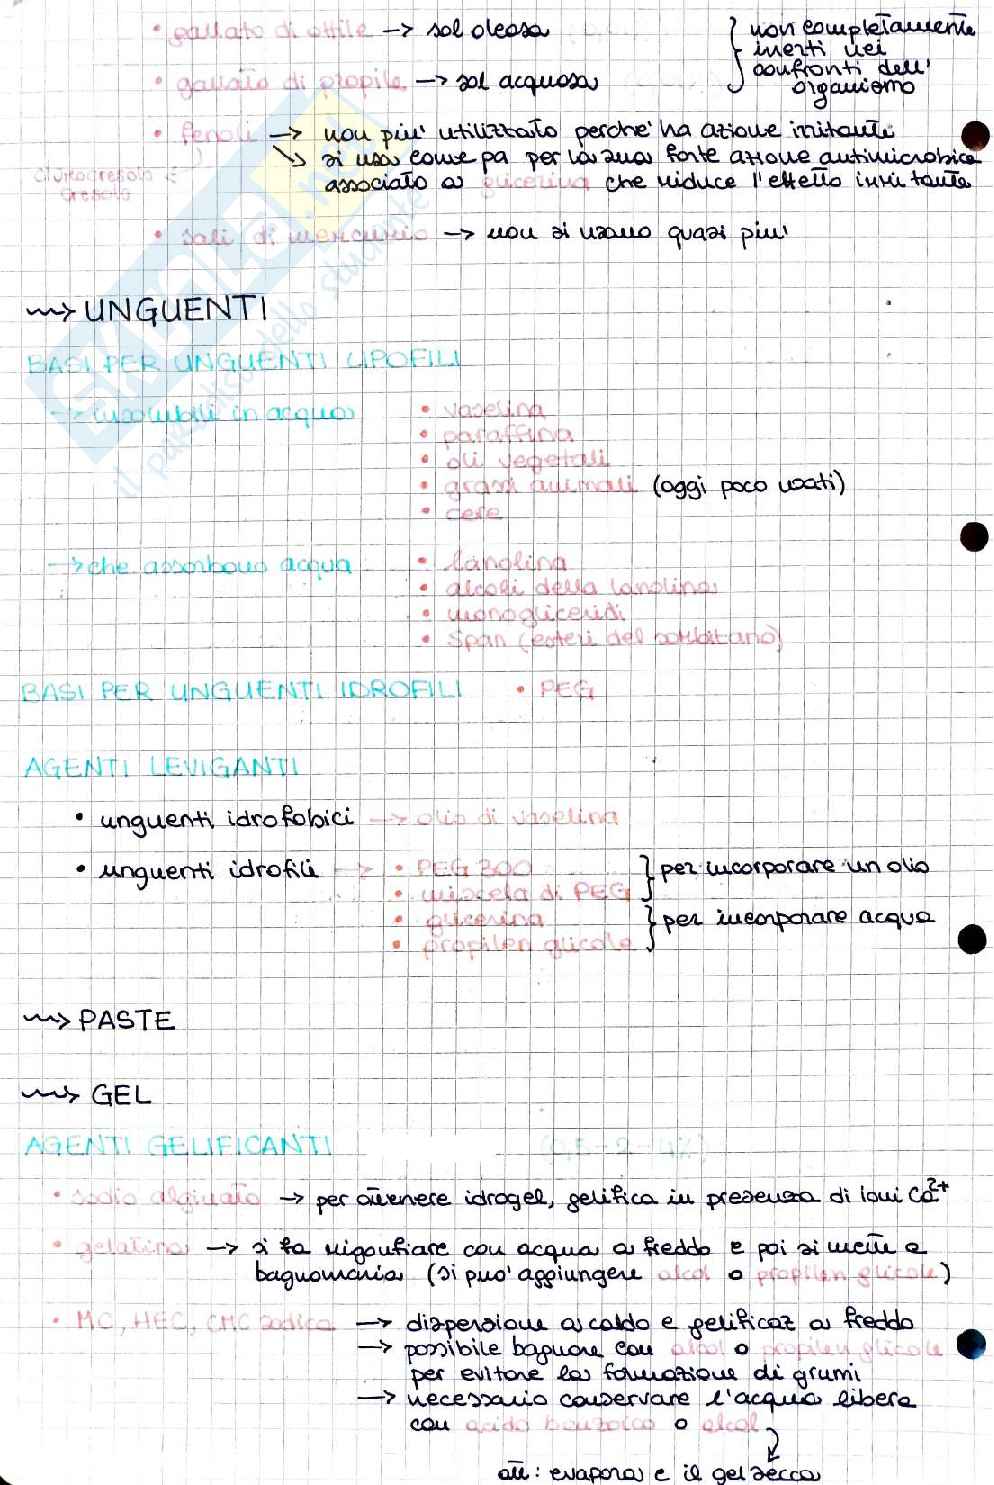 • gallato di ottile → sol oleosa
• gallato di propile → sol acquosa
} non completamente
inerti nei
confronti dell'
organismo
• fenoli → non piu' utilizzato perche' ha azione irritante
→ si usa come pa per la sua forte azione antimicrobica
associato a glicerina che riduce l'effetto irritante
clorocresolo E
cresolo
• sali di mercurio → non si usano quasi piu'
→ UNGUENTI
BASI PER UNGUENTI LIPOFILI
→ insolubili in acqua
• vaselina
• paraffina
• oli vegetali
• grassi animali (oggi poco usati)
• cere
→ che assorbono acqua
• lanolina
• alcoli della lanolina
• monogliceridi
• Span (esteri del sorbitano)
BASI PER UNGUENTI IDROFILI • PEG
AGENTI LEVIGANTI
• unguenti idrofobici → olio di vaselina
• unguenti idrofili → • PEG 300
• miscela di PEG
} per incorporare un olio
• glicerina
• propilen glicole
} per incorporare acqua
→ PASTE
→ GEL
AGENTI GELIFICANTI
• sodio alginato → per ottenere idrogel, gelifica in presenza di ioni Ca2+
• gelatina → si fa rigonfiare con acqua a freddo e poi si mette a
bagnomaria (si puo' aggiungere alcol o propilen glicole)
• MC, HEC, CMC sodica → dispersione a caldo e gelificaz a freddo
→ possibile bagnare con alcol o propilen glicole
per evitare la formazione di grumi
→ necessario conservare l'acqua libera
con acido benzoico o alcol
att: evapora e il gel secca
il paradiso dello studente